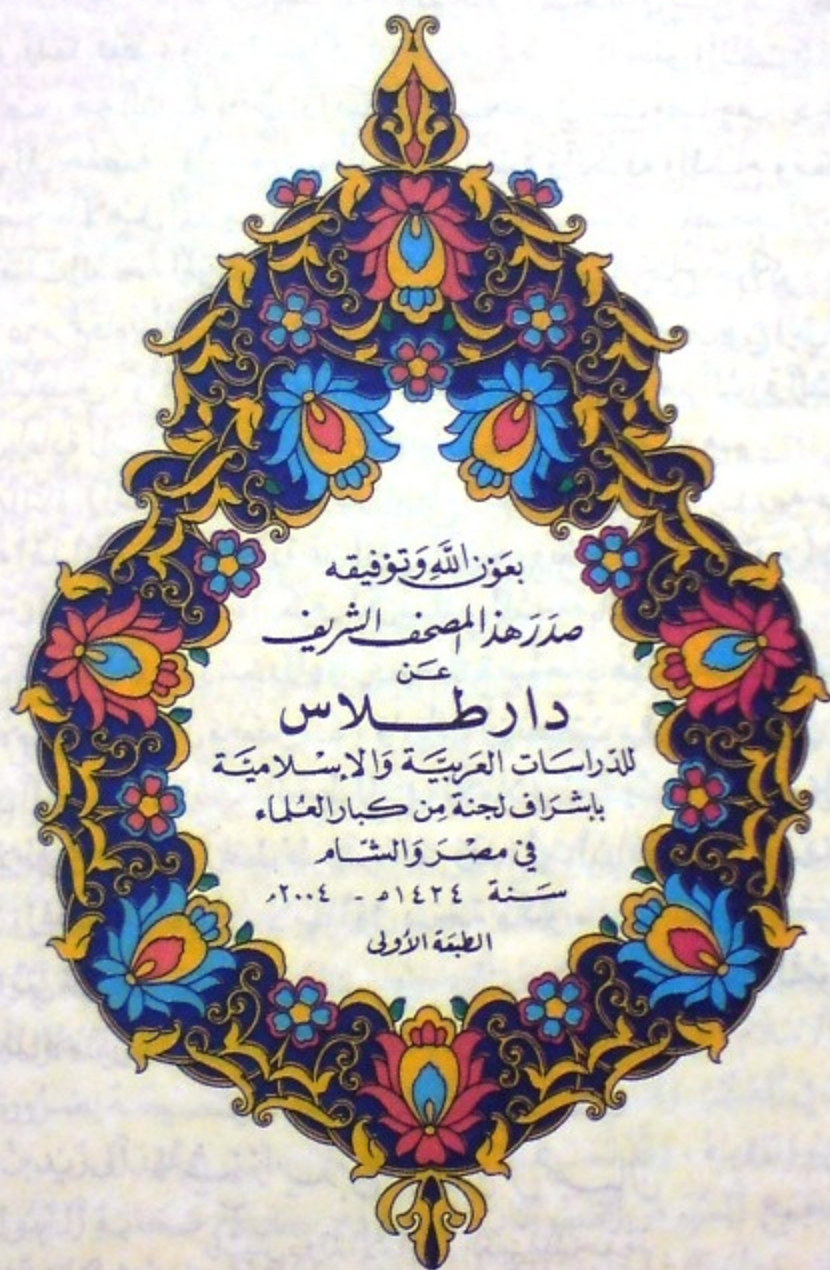 بعَون اللَّهِ وَتوْفيقه
صدَرَ هذا المصحف الشريف
عَن
دار طلاس
للدّراسَات العَربيَّة وَالإسْلاميَّة
بإشرَاف لجنة مِن كبار العُلماء
في مصْر وَالشّام
سَنة ١٤٢٤ه - ٢٠٠٤م
الطبعَة الأولى